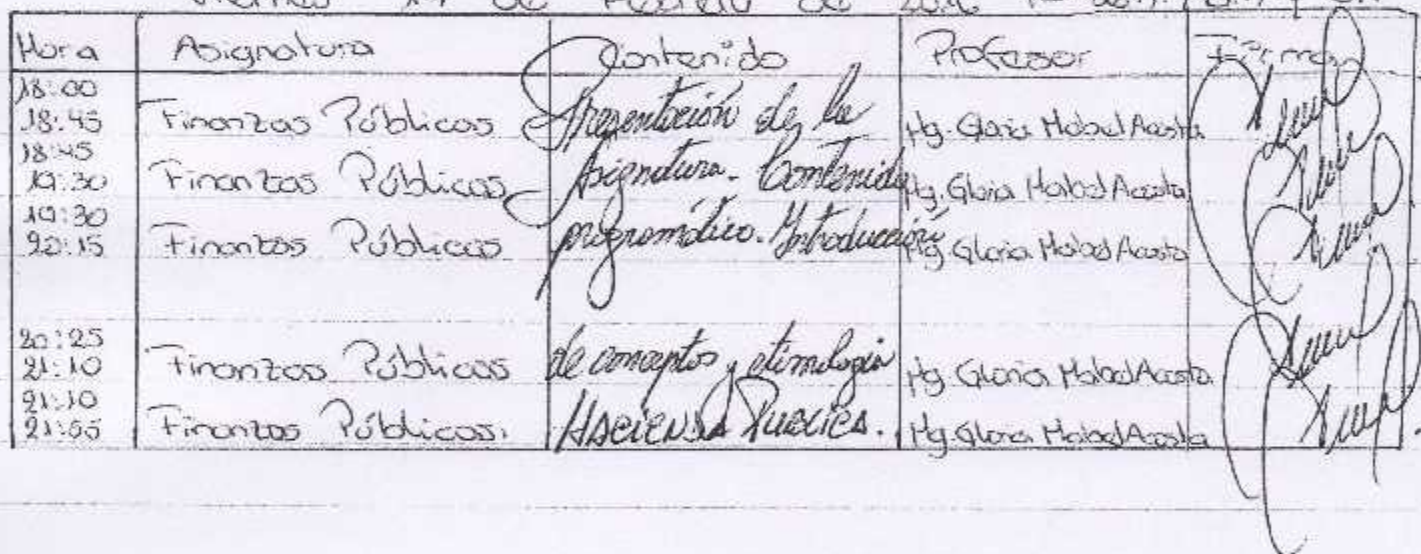 de 2016
Hora Asignatura Contenido Profesor Firma
18:00
18:45 Finanzas Públicas Presentación de la Mg. Gloria Mabel Acosta
18:45
19:30 Finanzas Públicas Asignatura. Contenido Mg. Gloria Mabel Acosta
19:30
20:15 Finanzas Públicas programático. Introducción Mg. Gloria Mabel Acosta
20:25
21:10 Finanzas Públicas de conceptos y etimología Mg. Gloria Mabel Acosta
21:10
21:55 Finanzas Públicas. Hacienda Publica. Mg. Gloria Mabel Acosta